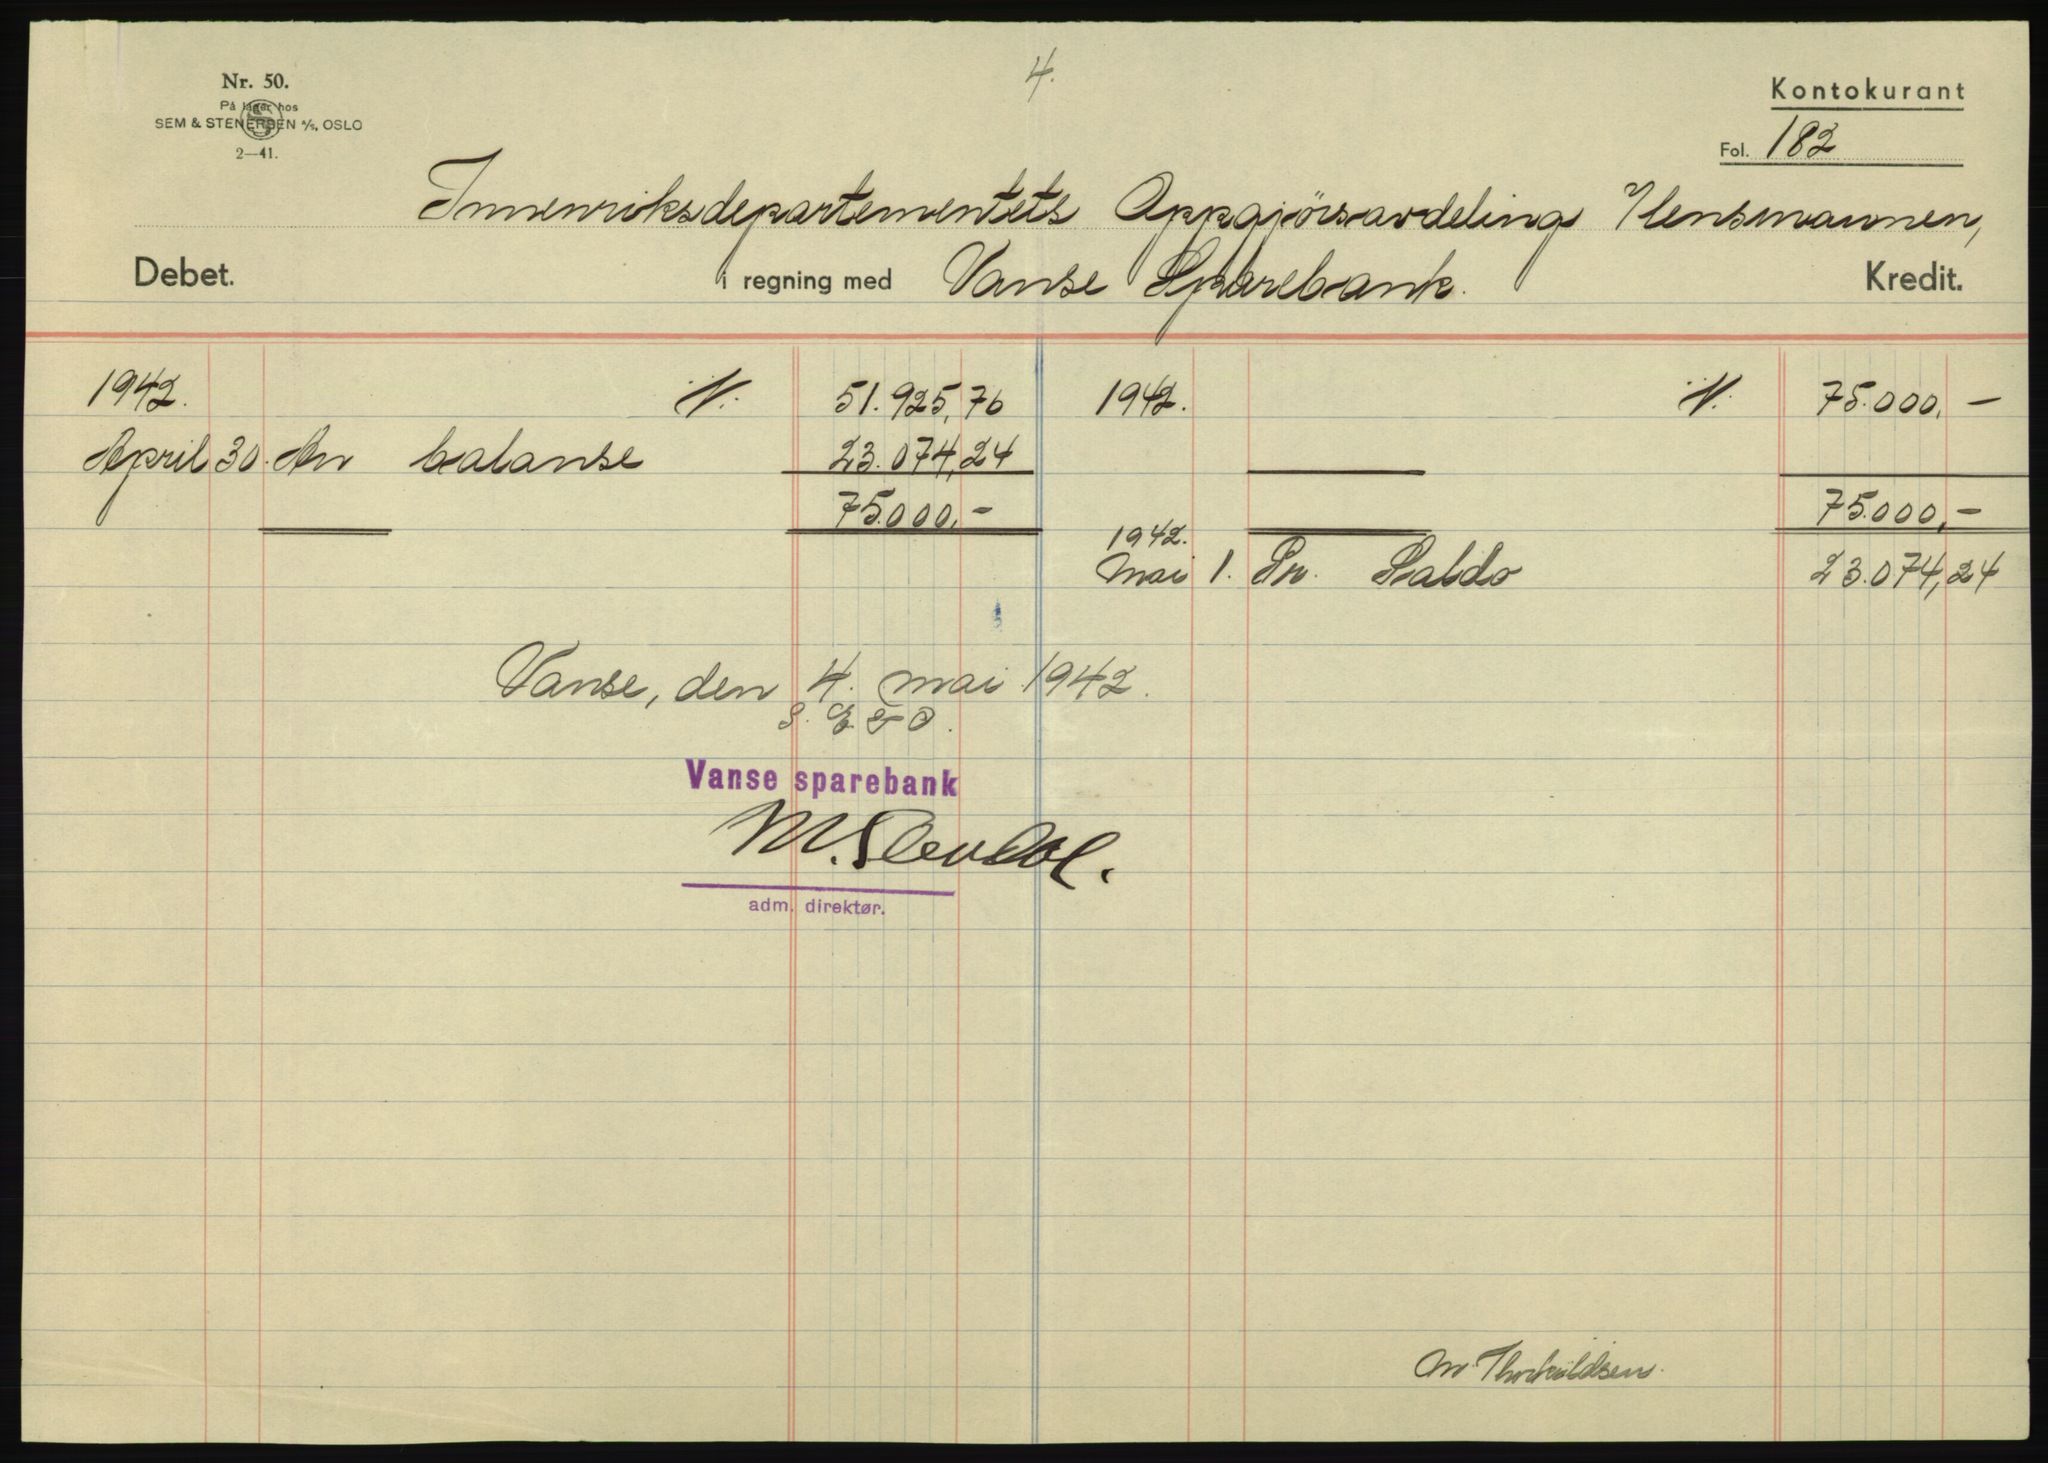 4.
Nr. 50.
På lager hos
SEM & STENERSEN A/S, OSLO
2—41.
Kontokurant
Fol. 182
Innenriksdepartementets Oppgjörsavdeling V/Lensmannen,
Debet. i regning med Vanse Sparebank. Kredit.
1942. V. 51.925,76 1942. V. 75.000,—
April 30. An balanse 23.074,24
75.000,— 75.000,—
1942.
Mai 1. Pr. Saldo 23.074,24
Vanse, den 4. mai 1942.
S. E & O.
Vanse sparebank
M.
adm. direktør.
M. Thorkildsen.